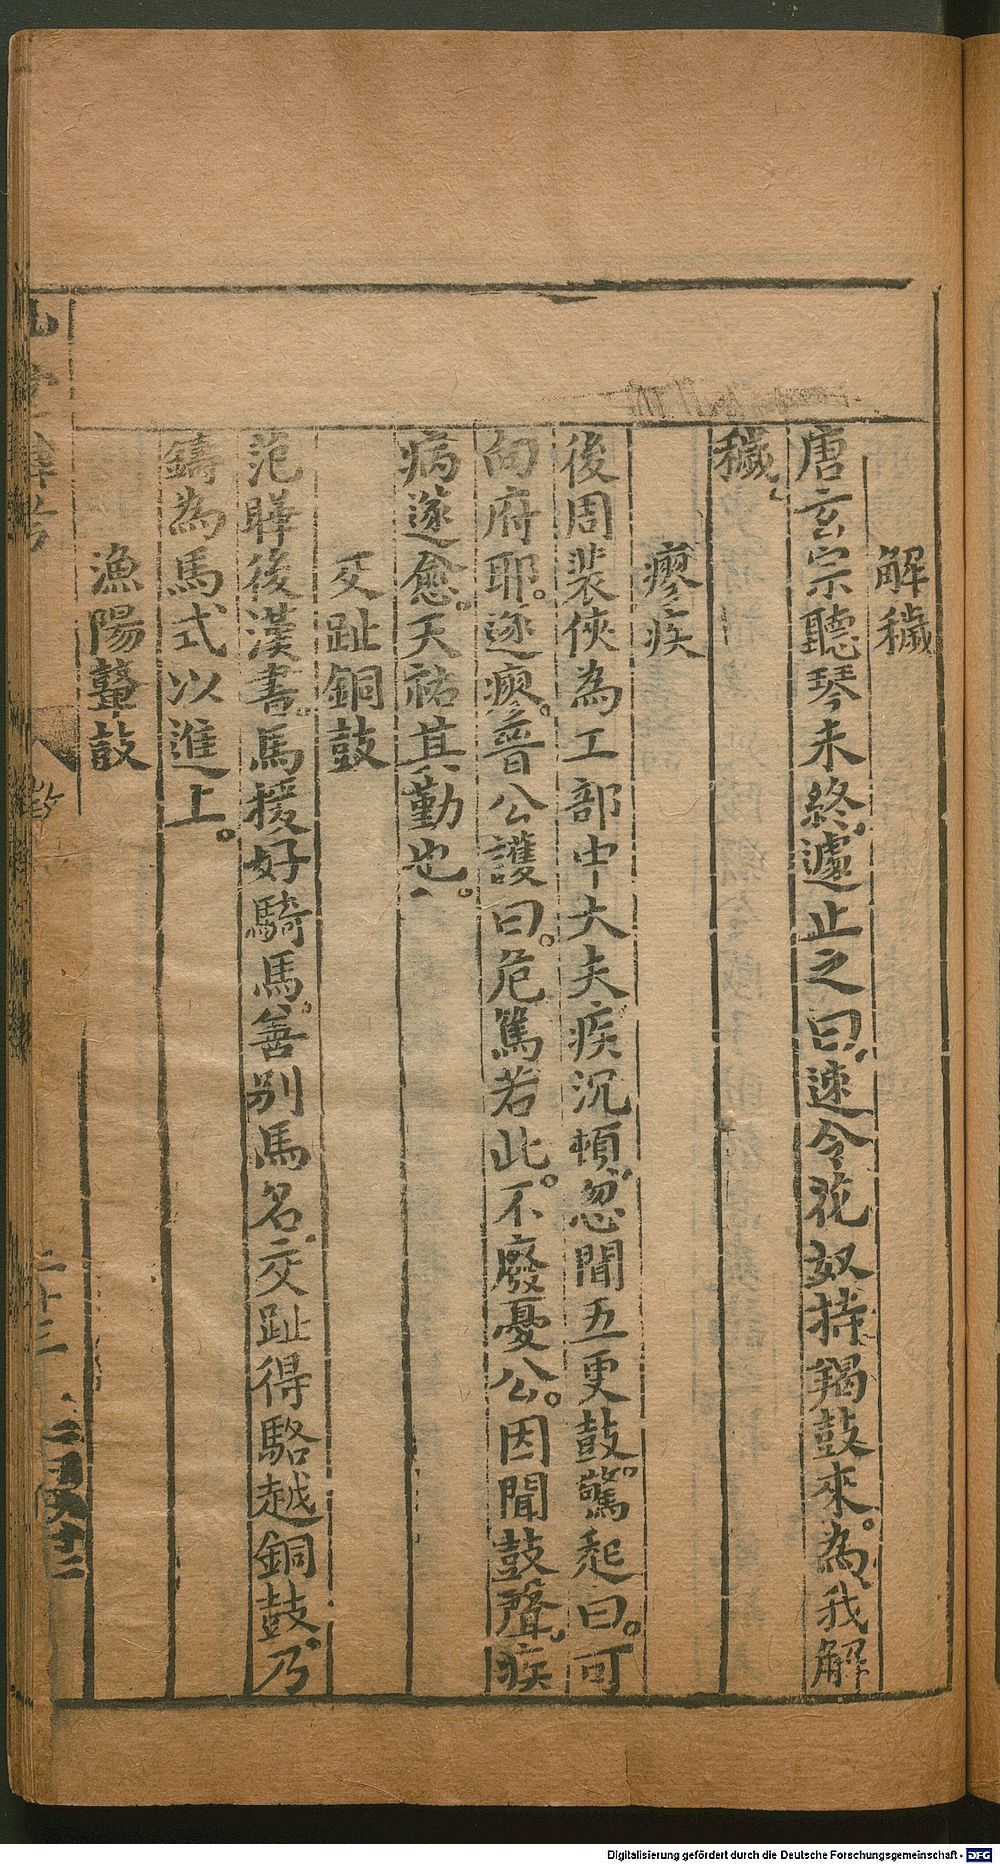 解穢
唐玄宗聽琴未終遽止之曰速令花奴持羯鼓來。為我解
穢
瘳疾
後周裴俠為工部中大夫疾沉頓忽聞五更鼓。驚起曰。可
向府耶。遂瘳。晉公護曰。危篤若此。不廢憂公。因聞鼓聲。疾
病遂愈。天祐其勤也。
交趾銅鼓
范曄後漢書。馬援好騎馬。善別馬名。交趾得駱越銅鼓。乃
鑄為馬式以進上。
漁陽鼙鼓
二十三
Digitalisierung gefördert durch die Deutsche Forschungsgemeinschaft - DFG